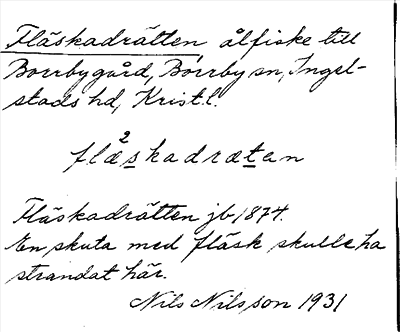 Fläskadrätten, ålfiske till
Borrbygård, Borrby sn, Ingel-
stads hd, Krist.l.
2
flæskadrætan
Fläskadrätten jb, 1874.
En skuta med fläsk skulle ha
strandat här.
Nils Nilsson 1931